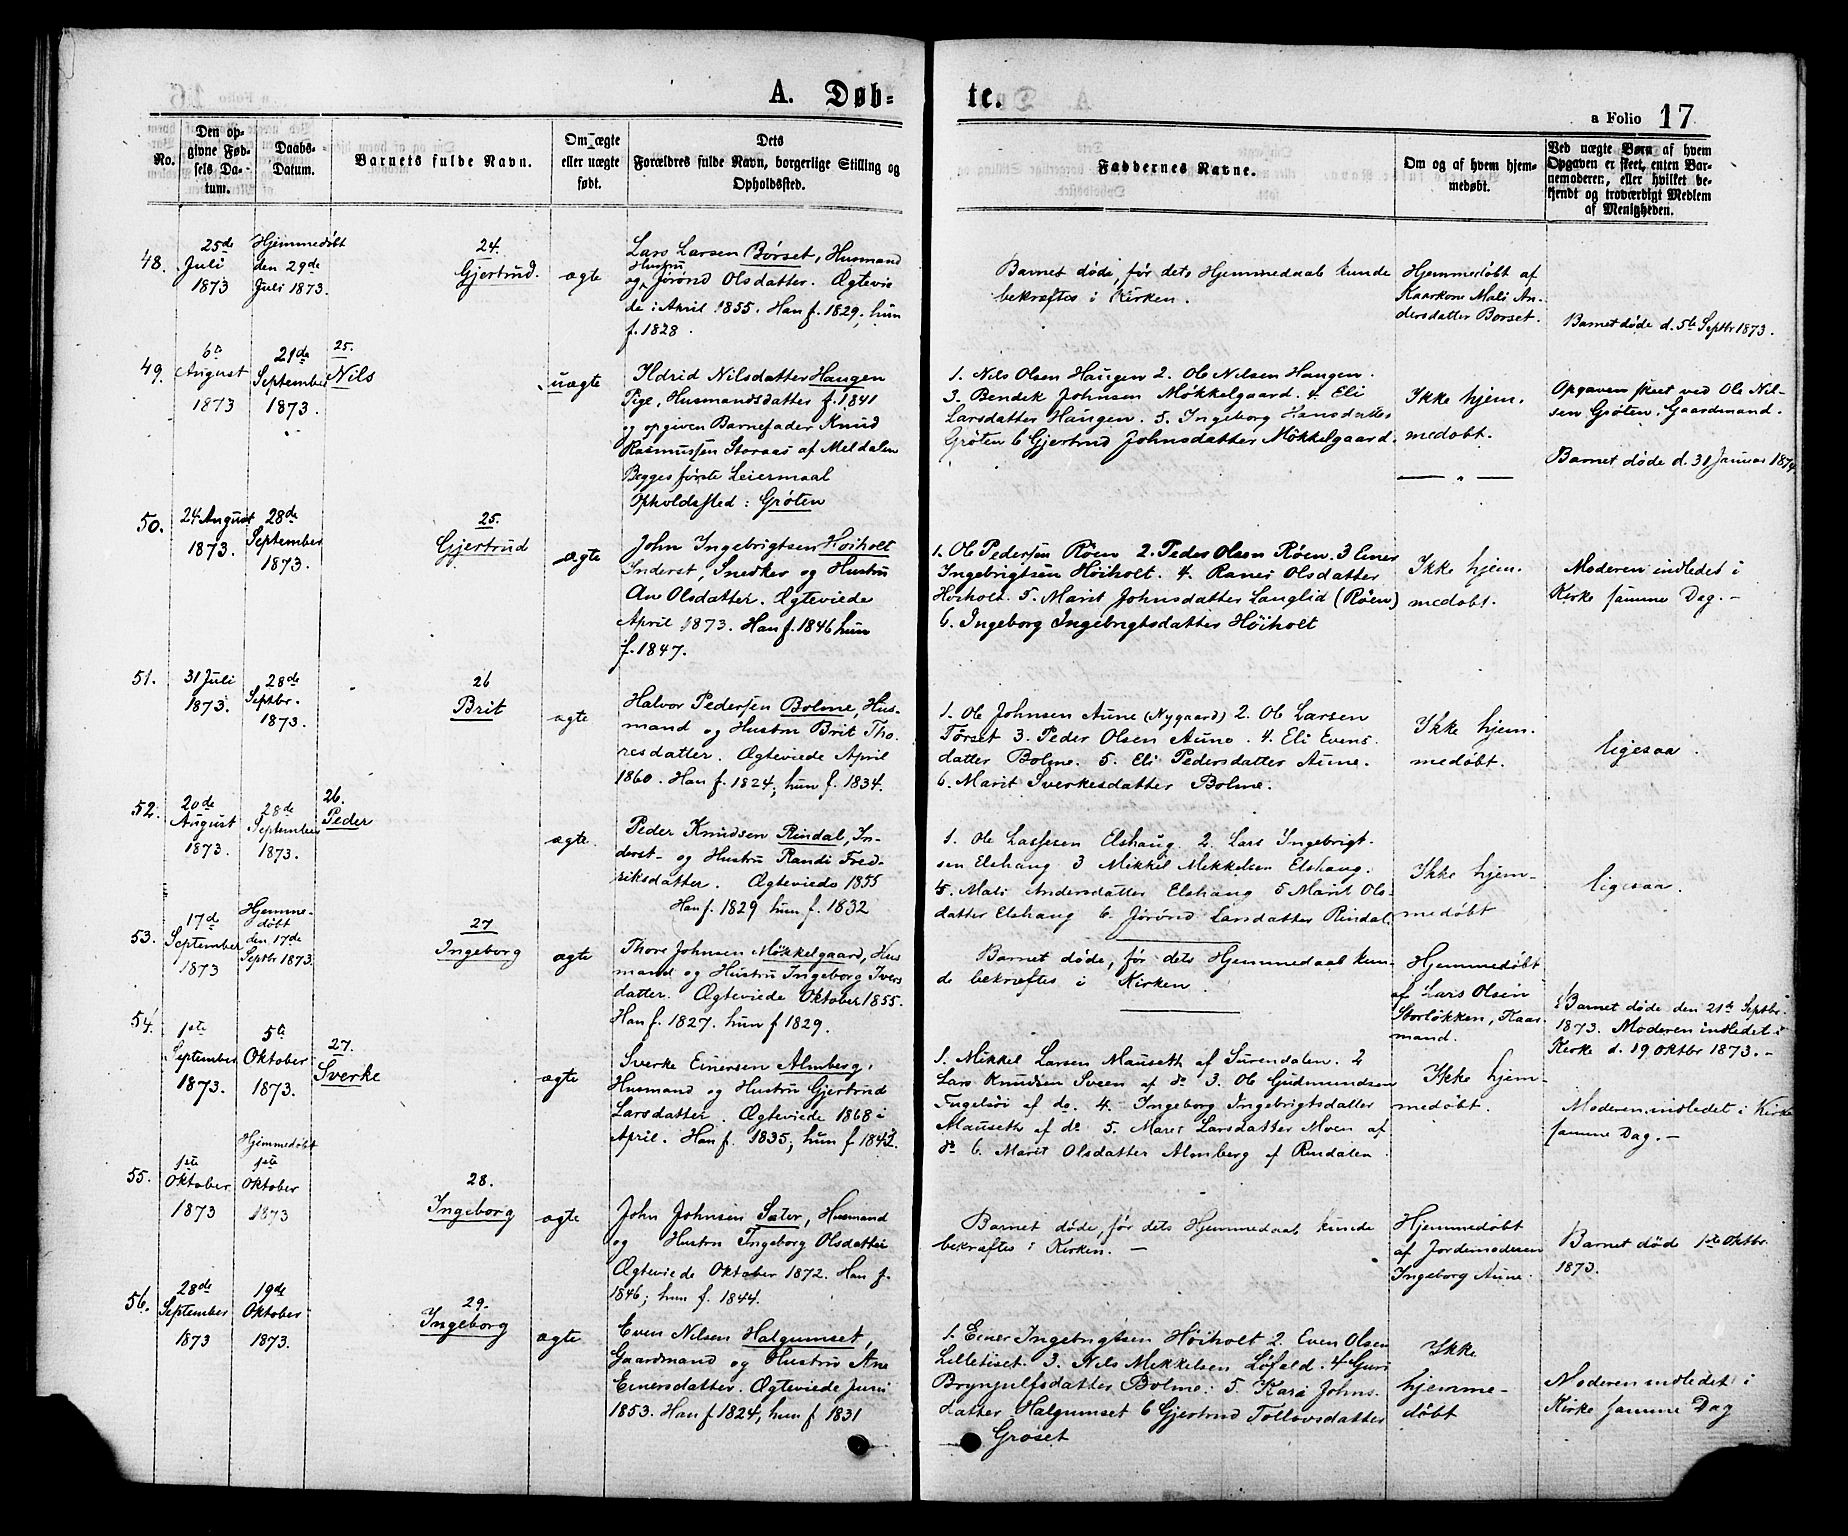 A. Døb-
te.
a Folio 17
No.
Den op-
givne Fød-
sels Da-
tum.
Daabs-
Datum.
Barnets fulde Navn.
Om ægte
eller uægte
født.
Dets
Forældres fulde Navn, borgerlige Stilling og
Opholdssted.
Faddernes Navne.
Om og af hvem hjem-
medøbt.
Ved uægte Børn af hvem
Opgaven er skeet, enten Bar-
nemoderen, eller hvilket be-
kjendt og troværdigt Medlem
af Menigheden.
48.
25de
Juli
1873
Hjemmedøbt
den 29de
Juli 1873.
24.
Gjertrud.
ægte
Lars Larsen Børset, Husmand
Hustru
og Jørond Olsdatter. Ægtevie
de i April 1855. Han f. 1829, hun
f. 1828.
Barnet døde, før dets Hjemmedaab kunde
bekræftes i Kirken.
Hjemmedøbt af
Kaarkone Mali An-
dersdatter Børset.
Barnet døde d. 5te Septbr 1873.
49.
6te
August
1873
21de
September
1873.
25.
Nils
uægte
Ildrid Nilsdatter Haugen
Pige, Husmandsdatter f. 1841
og opgiven Barnefader Knud
Rasmussen Storaas af Meldalen
Begges første Leiermaal
Opholdssted: Grøten
1. Nils Olsen Haugen 2. Ole Nilsen Haugen.
3. Bendek Johnsen Møkkelgaard. 4. Eli
Larsdatter Haugen. 5. Ingeborg Hansdatter
Grøten 6 Gjertrud Johnsdatter Møkkelgaard.
Ikke hjem-
medøbt.
— " —
Opgaven skeet ved Ole Nil-
sen Grøten, Gaardmand.
Barnet døde d. 31 Januar 1874.
50.
24 August
1873.
28de
September
1873.
25.
Gjertrud
ægte
John Ingebrigtsen Høiholt
Inderst, Snedker og Hustru
An Olsdatter. Ægteviede
April 1873. Han f. 1846 hun
f. 1847.
1. Ole Pedersen Røen 2. Peder Olsen Røen. 3 Einer
Ingebrigtsen Høiholt. 4. Ranei Olsdatter
Høiholt. 5. Marit Johnsdatter Langlid (Røen)
6. Ingeborg Ingebrigtsdatter Høiholt
Ikke hjem-
medøbt.
Moderen indledet i
Kirke samme Dag. -
51.
31 Juli
1873.
28de
Septbr.
1873.
26
Brit
ægte
Halvor Pedersen Bolme, Hus-
mand og Hustru Brit Tho-
resdatter. Ægteviede April
1860. Han f. 1824; hun f. 1834.
1. Ole Johnsen Aune (Nygaard) 2. Ole Larsen
Tørset 3. Peder Olsen Aune. 4. Eli Evens-
datter Bolme. 5. Eli Pedersdatter Aune.
6. Marit Sverkesdatter Bolme.
Ikke hjem-
medøbt.
ligesaa.
52.
20de
August
1873.
28de
September
1873.
26.
Peder
ægte.
Peder Knudsen Rindal, In-
derst- og Hustru Randi Fred-
riksdatter. Ægteviede 1855
Han f. 1829 hun f. 1832
1. Ole Lassesen Elshaug 2. Lars Ingebrigt-
sen Elshaug 3 Mikkel Mikkelsen Elshaug.
4. Mali Andersdatter Elshaug 5 Marit Ols-
datter Elshaug 6. Jørond Larsdatter Rindal.
Ikke hjem-
medøbt
ligesaa.
53.
17de
September
1873
Hjemme-
døbt
den 17de
Septbr 1873.
27
Ingeborg
ægte
Thore Johnsen Møkkelgaard, Hus
mand og Hustru Ingeborg Ivers
datter. Ægteviede Oktober 1855.
Han f. 1827. hun f 1829.
Barnet døde, før dets Hjemmedaab kun-
de bekræftes i Kirken.
Hjemmedøbt
af Lars Olsen
Storløkken, Kaar-
mand.
Barnet døde den 21de Septbr.
1873. Moderen indledet i
Kirke d. 19 Oktbr 1873. -
54.
1ste
September
1873.
5te
Oktober
1873.
27.
Sverke
ægte
Sverke Einersen Almberg,
Husmand og Hustru Gjertrud
Larsdatter. Ægteviede 1868 i
April. Han f. 1835; hun f 1842.
1. Mikkel Larsen Mauseth af Surendalen. 2
Lars Knudsen Sveen af do 3. Ole Gudmundsen
Fugelsøi af do. 4. Ingeborg Ingebrigtsdatter
Mauseth af do 5. Marit Larsdatter Moen af
do 6. Marit Olsdatter Almberg af Rindalen.
Ikke hjem-
medøbt.
Moderen indledet i Kirke
samme Dag. -
55.
1ste
Oktober
1873
Hjemmedøbt
1ste
Oktober
1873
28.
Ingeborg
ægte
John Johnsen Sæter, Husmand
og Hustru Ingeborg Olsdatter
Ægteviede Oktober 1872. Han f.
1846; hun f. 1844.
Barnet døde, før dets Hjemmedaab kunde
bekræftes i Kirken. -
Hjemmedøbt
af Jordemoderen
Ingeborg Aune.
Barnet døde 1ste Oktbr.
1873.
56.
28de
September
1873
19de
Oktober
1873.
29.
Ingeborg
ægte
Even Nilsen Halgumset,
Gaardmand og Hustru Ane
Einersdatter. Ægteviede Juni
1853. Han f 1824, hun f 1831
1. Einer Ingebrigtsen Høiholt 2. Even Olsen
Lilletiset. 3. Nils Mikkelsen Løfald. 4 Guri
Brynjulfsdatter Bolme. 5. Kari Johns-
datter Halgumset 6 Gjertrud Tollovsdatter
Grøset
Ikke
hjemme-
døbt
Moderen indledet i
Kirke samme Dag